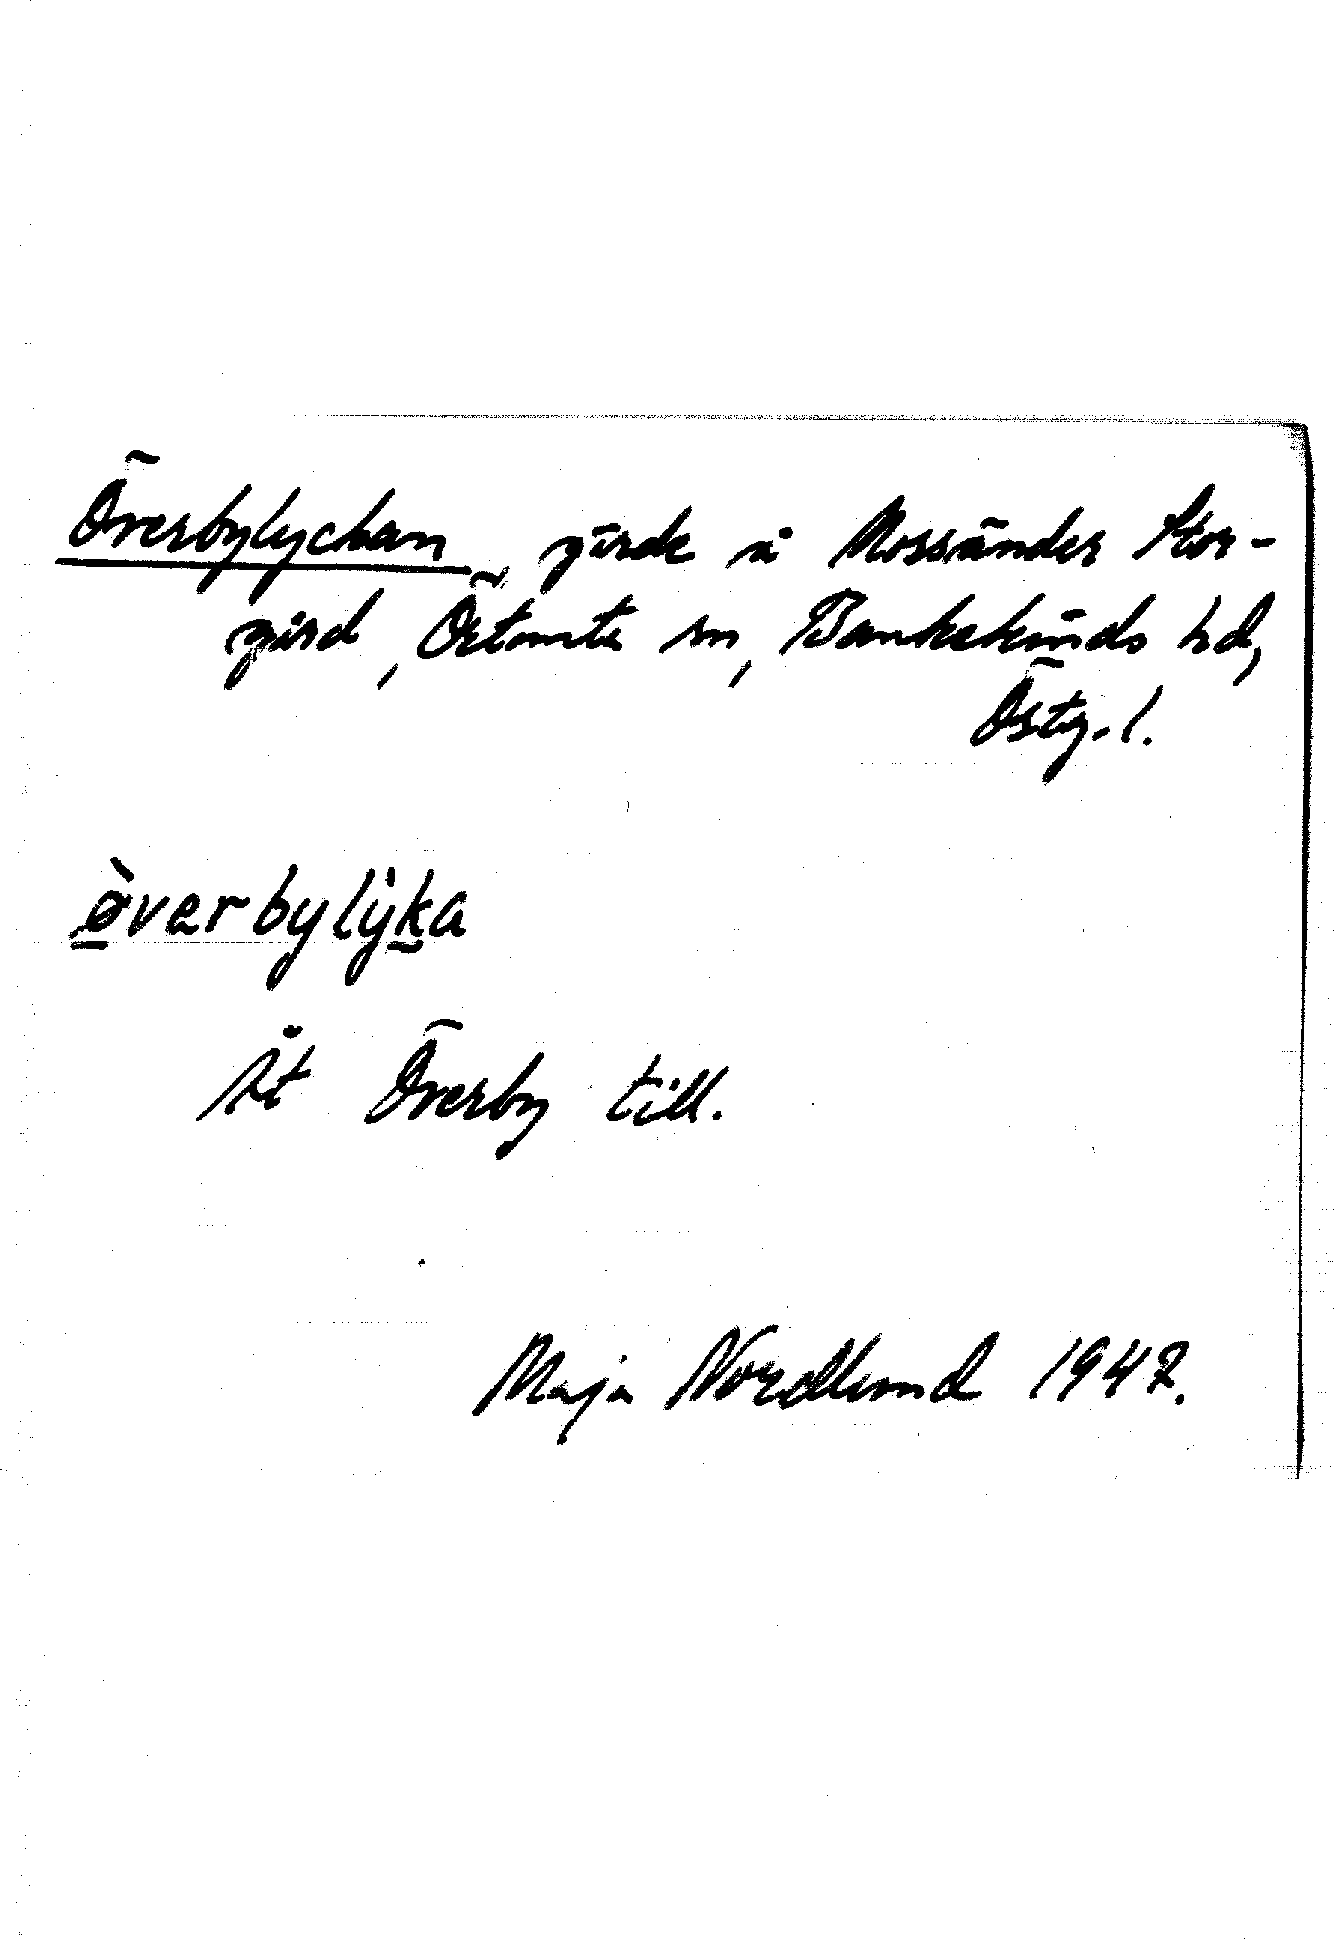 Överbylyckan, gärde å Mossänder Stor-
gård, Örtomta sn, Bankekinds hd,
Östg. l.
ø̀verbylỳka
Åt Överby till.
Maja Nordlund 1942.